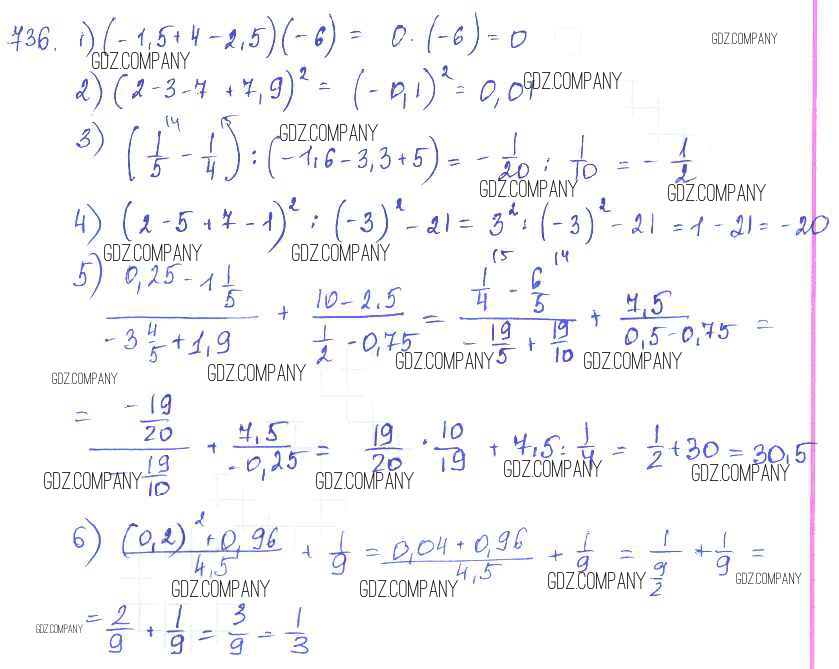 736. 1) (-1,5+4-2,5)(-6) = 0·(-6) = 0
GDZ.COMPANY GDZ.COMPANY
2) (2-3-7+7,9)² = (-0,1)² = 0,01 GDZ.COMPANY
3) (1/5 \4 - 1/4 \5) : (-1,6-3,3+5) = -1/20 : 1/10 = -1/2
GDZ.COMPANY GDZ.COMPANY GDZ.COMPANY
4) (2-5+7-1)² : (-3)² - 21 = 3² : (-3)² - 21 = 1-21 = -20
GDZ.COMPANY GDZ.COMPANY
5) (0,25 - 1 1/5)/(-3 4/5 + 1,9) + (10-2.5)/(1/2 - 0,75) = (1/4 \5 - 6/5 \4)/(-19/5 + 19/10) + 7,5/(0,5-0,75) =
GDZ.COMPANY GDZ.COMPANY GDZ.COMPANY GDZ.COMPANY
= (-19/20)/(-19/10) + 7,5/(-0,25) = 19/20 · 10/19 + 7,5 : 1/4 = 1/2 + 30 = 30,5
GDZ.COMPANY GDZ.COMPANY GDZ.COMPANY GDZ.COMPANY
6) ((0,2)² + 0,96)/4,5 + 1/9 = (0,04 + 0,96)/4,5 + 1/9 = 1/(9/2) + 1/9 =
GDZ.COMPANY GDZ.COMPANY GDZ.COMPANY GDZ.COMPANY
= 2/9 + 1/9 = 3/9 = 1/3
GDZ.COMPANY